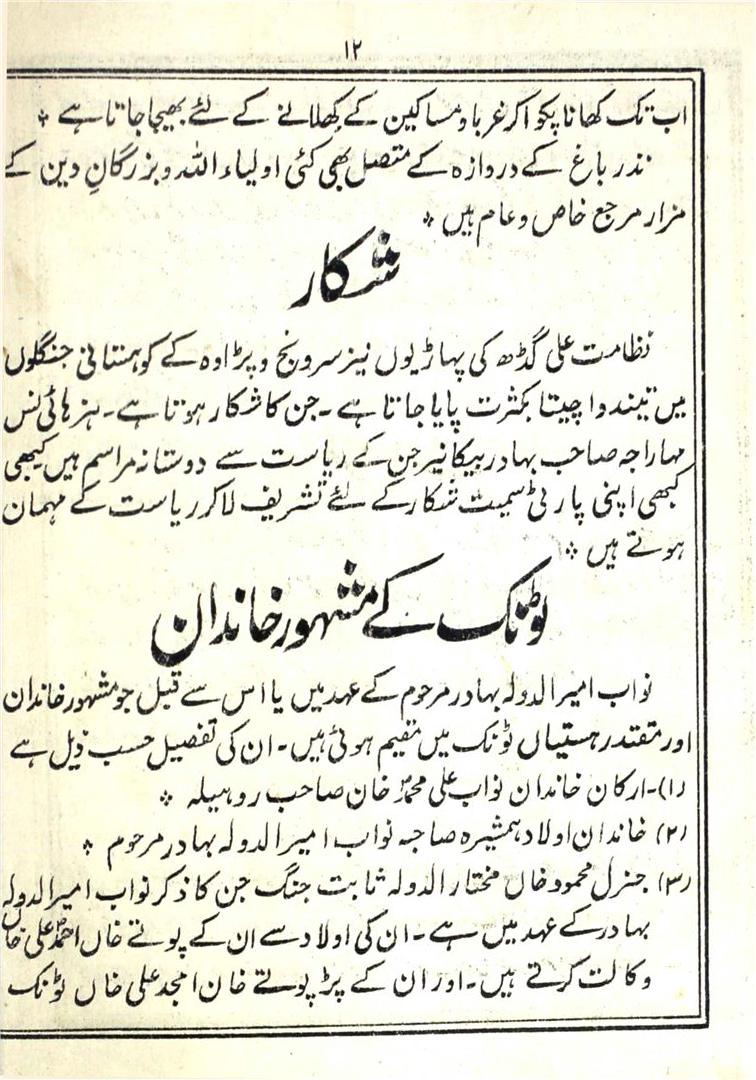 ۱۲
اب تک کھانا پکوا کر غربا و مساکین کے کھلانے کے لئے بھیجا جاتا ہے ٭
نذر باغ کے دروازہ کے متصل بھی کئی اولیاء اللہ و بزرگانِ دین کے
مزار مرجع خاص و عام ہیں ٭
شکار
نظامت علی گڈھ کی پہاڑیوں نیز سرونج و پڑاوہ کے کوہستانی جنگلوں
میں تیندوا چیتا بکثرت پایا جاتا ہے ۔ جن کا شکار ہوتا ہے ۔ ہز ہائی نس
مہاراجہ صاحب بہادر بیکانیر جن کے ریاست سے دوستانہ مراسم ہیں کبھی
کبھی اپنی پارٹی سمیت شکار کے لئے تشریف لاکر ریاست کے مہمان
ہوتے ہیں ٭
ٹونک کے مشہور خاندان
نواب امیر الدولہ بہادر مرحوم کے عہد میں یا اس سے قبل جو مشہور خاندان
اور مقتدر ہستیاں ٹونک میں مقیم ہوئی ہیں ۔ ان کی تفصیل حسب ذیل ہے
(۱)۔ ارکان خاندان نواب علی محمدؐ خان صاحب روہیلہ ٭
(۲) خاندان اولاد ہمشیرہ صاحبہ نواب امیر الدولہ بہادر مرحوم ٭
(۳) جنرل محمود خاں مختار الدولہ ثابت جنگ جن کا ذکر نواب امیر الدولہ
بہادر کے عہد میں ہے ۔ ان کی اولاد سے ان کے پوتے خاں احمدؐ علی خاں
وکالت کرتے ہیں ۔ اور ان کے پڑپوتے خان امجد علی خاں ٹونک